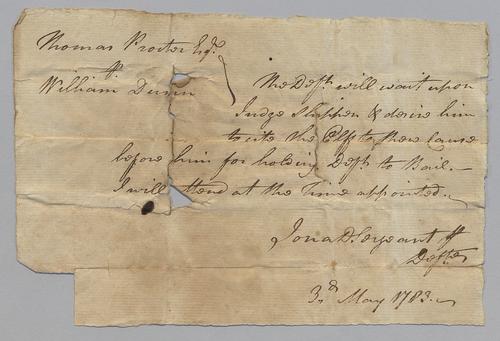 Thomas Procter Esqr.
William Dunn
The Deft. will wait upon
Judge Shippen & desire him
to cite the Plf to shew Cause
before him for holding Deft. to Bail.—
I will attend at the Time appointed.
Jona D Sergeant
Deft.
3d May 1783.